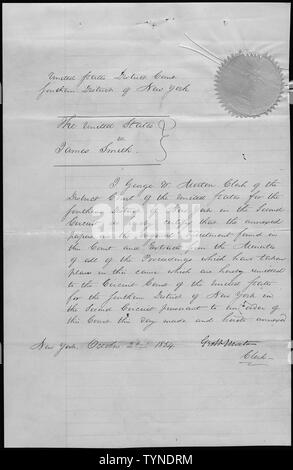 United States District Court
Southern District of New York
The United States
vs
James Smith.
I George W. Morton Clerk of the
District Court of the United States for the
Southern District of New York in the Second
Circuit do certify that the annexed
papers is the Indictment found in
this Court and Extracts from the Minutes
of all of the Proceedings which have taken
place in this cause which are hereby remitted
to the Circuit Court of the United States
for the Southern District of New York in
the Second Circuit pursuant to an order of
this Court this day made and hereto annexed
New York, October 2nd 1854. Geo W Morton
Clerk
alamy
TYNDRM